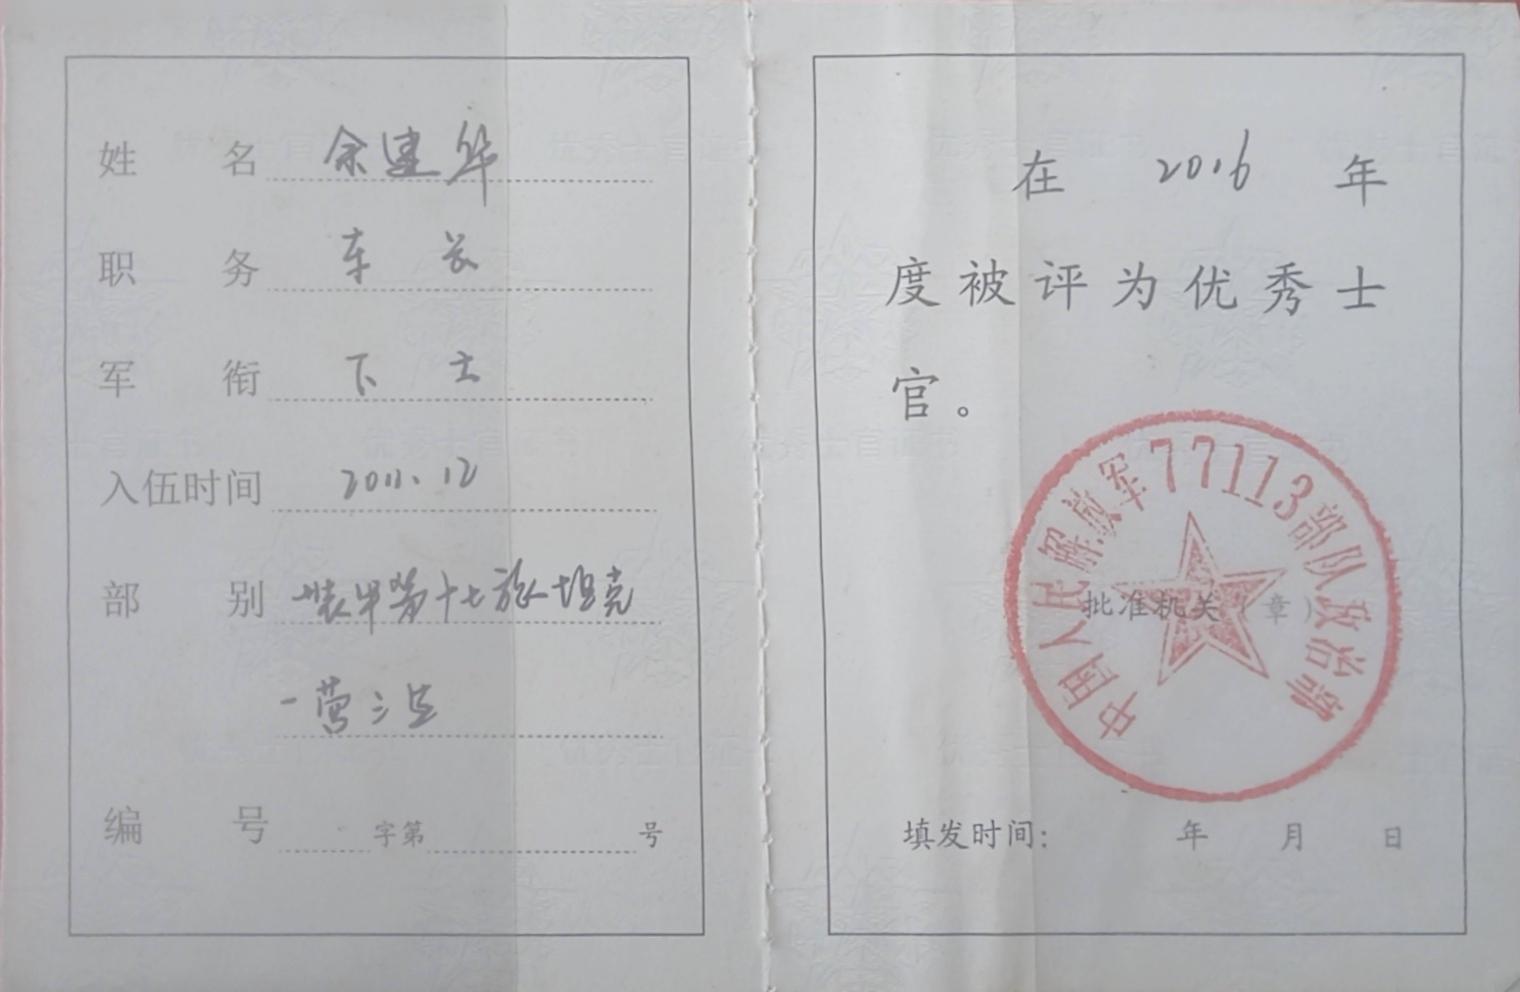 姓 名 余建华
职 务 车长
军 衔 下士
入伍时间 2011.12
部 别 装甲第十七旅坦克
一营三连
编 号 字第 号
在 2016 年
度被评为优秀士
官。
中国人民解放军77113部队政治部
批准机关（章）
填发时间: 年 月 日
优秀士官证书